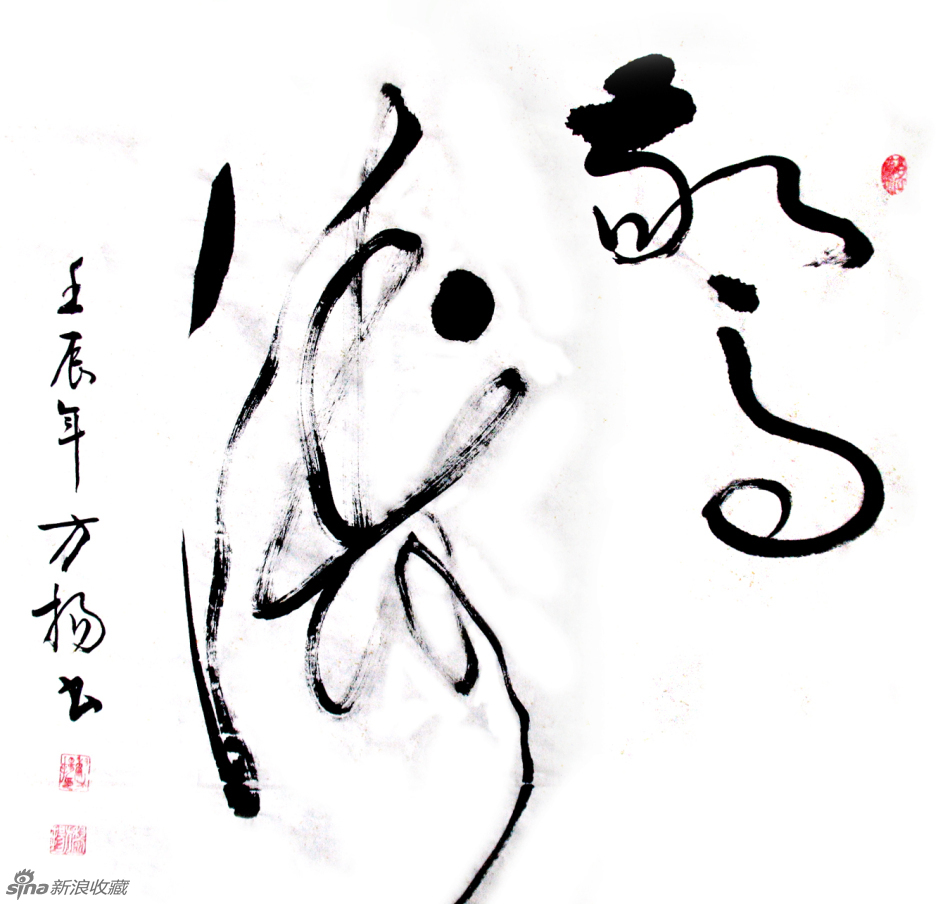 驚濤
壬辰年方扬书
sina新浪收藏